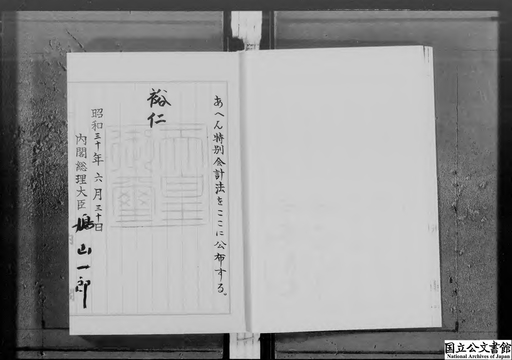 あへん特別会計法をここに公布する。
裕仁
天皇御璽
昭和三十年六月三十日
内閣総理大臣 鳩山一郎
国立公文書館
National Archives of Japan